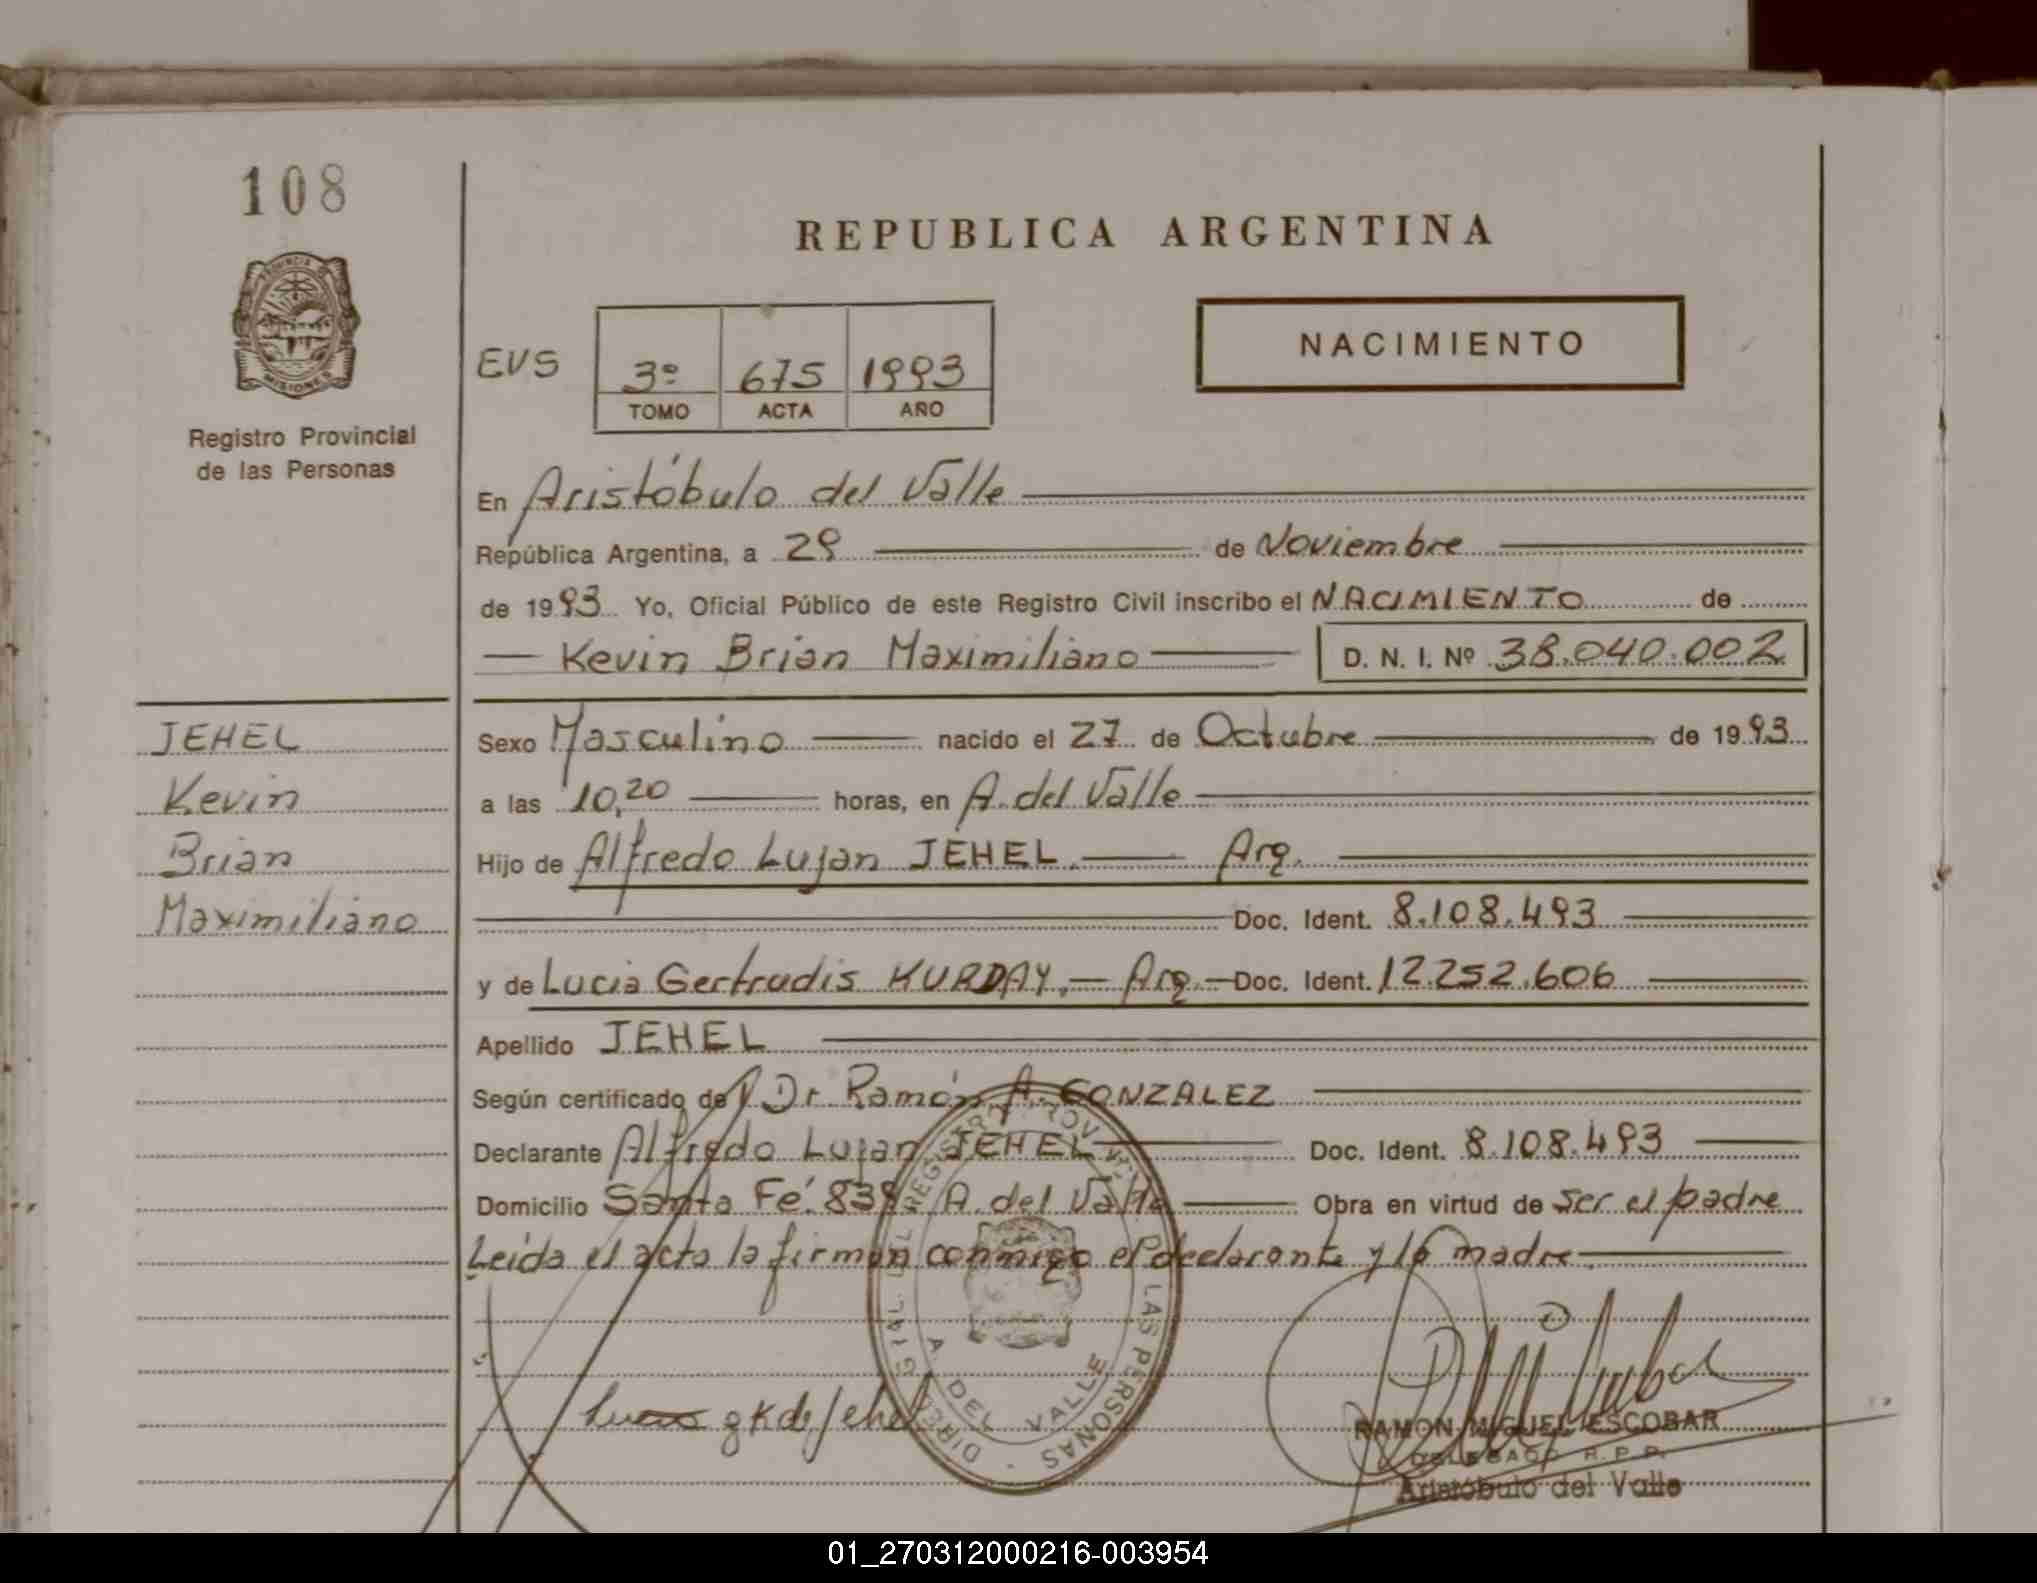 108
REPUBLICA ARGENTINA
PROVINCIA DE
MISIONES
Registro Provincial
de las Personas
EVS
3º 675 1993
TOMO ACTA AÑO
NACIMIENTO
En Aristóbulo del Valle
República Argentina, a 29 de Noviembre
de 1993 Yo, Oficial Público de este Registro Civil inscribo el NACIMIENTO de
Kevin Brian Maximiliano D. N. I. Nº 38.040.002
JEHEL
Kevin
Brian
Maximiliano
Sexo Masculino nacido el 27 de Octubre de 1993
a las 10,20 horas, en A. del Valle
Hijo de Alfredo Lujan JEHEL. Arg.
Doc. Ident. 8.108.493
y de Lucia Gertrudis KURDAY. Arg. Doc. Ident. 12.252.606
Apellido JEHEL
Según certificado de Dr Ramón A. GONZALEZ
Declarante Alfredo Lujan JEHEL Doc. Ident. 8.108.493
Domicilio Santa Fé 839 A. del Valle Obra en virtud de ser el padre
Leida el acta la firman conmigo el declarante y la madre.
A. DEL VALLE
LAS PERSONAS
g K de Jehel
RAMON MIGUEL ESCOBAR
DELEGADO R.P.P.
Aristóbulo del Valle
01_270312000216-003954